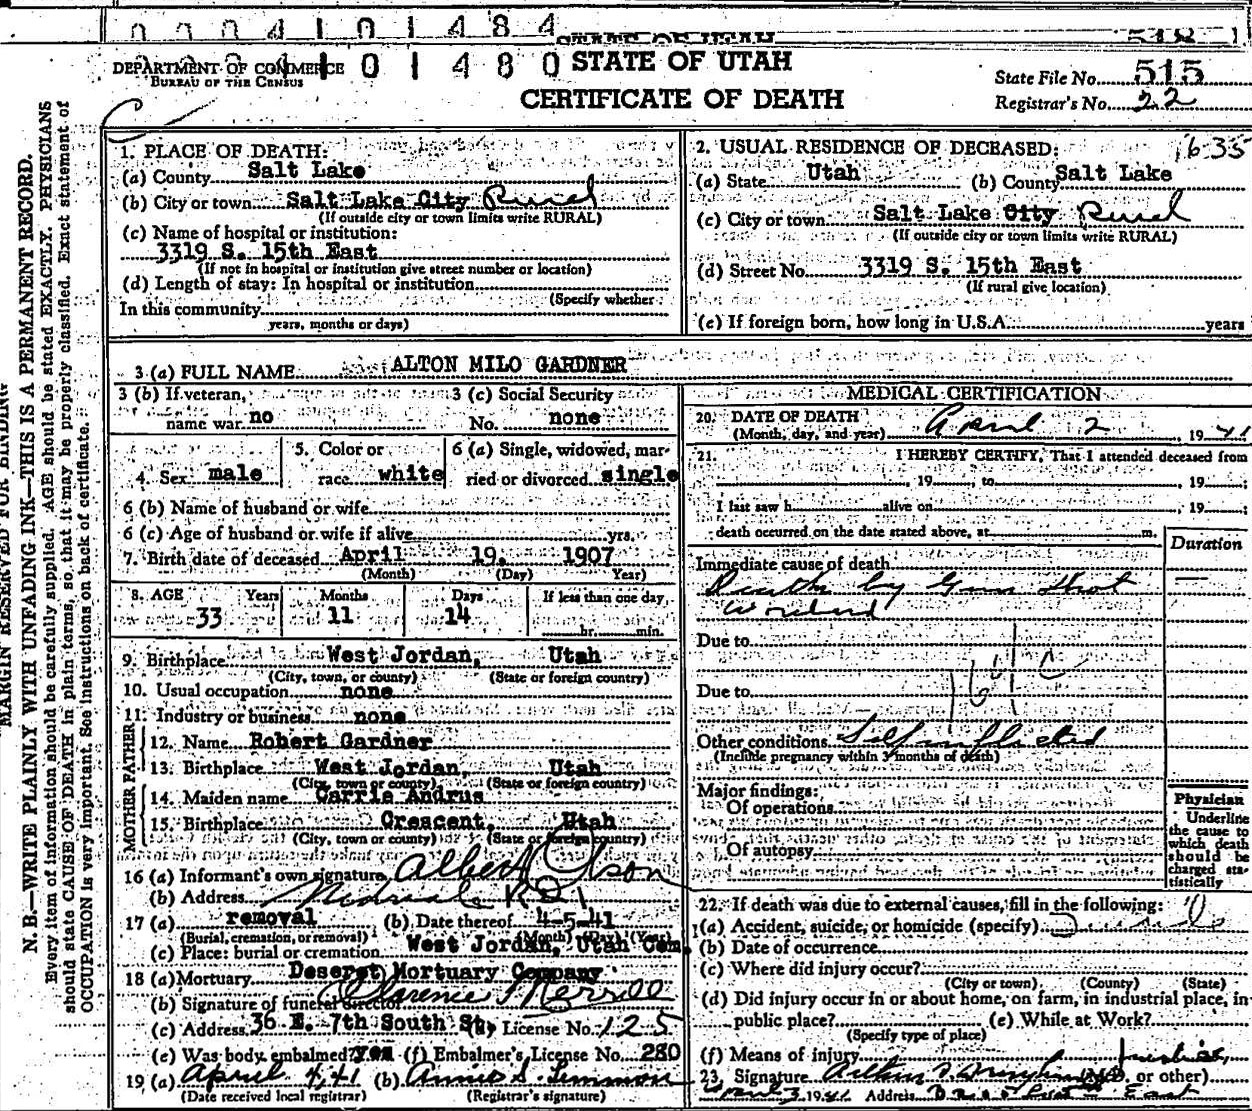 0 0 0 4 1 0 1 4 8 4
STATE OF UTAH
DEPARTMENT OF COMMERCE
BUREAU OF THE CENSUS
1 0 1 4 8 0
STATE OF UTAH
CERTIFICATE OF DEATH
State File No. 515
Registrar's No. 22
MARGIN RESERVED FOR BINDING
N. B.—WRITE PLAINLY WITH UNFADING INK—THIS IS A PERMANENT RECORD.
Every item of information should be carefully supplied. AGE should be stated EXACTLY. PHYSICIANS
should state CAUSE OF DEATH in plain terms, so that it may be properly classified. Exact statement of
OCCUPATION is very important. See instructions on back of certificate.
1. PLACE OF DEATH:
(a) County Salt Lake
(b) City or town Salt Lake City Rural
(If outside city or town limits write RURAL)
(c) Name of hospital or institution:
3319 S. 15th East
(If not in hospital or institution give street number or location)
(d) Length of stay: In hospital or institution
(Specify whether
In this community
years, months or days)
2. USUAL RESIDENCE OF DECEASED: 1635
(a) State Utah (b) County Salt Lake
(c) City or town Salt Lake City Rural
(If outside city or town limits write RURAL)
(d) Street No. 3319 S. 15th East
(If rural give location)
(e) If foreign born, how long in U.S.A. years
3 (a) FULL NAME ALTON MILO GARDNER
3 (b) If veteran, name war no
3 (c) Social Security No. none
4. Sex male
5. Color or race white
6 (a) Single, widowed, married or divorced single
6 (b) Name of husband or wife
6 (c) Age of husband or wife if alive yrs.
7. Birth date of deceased April 19, 1907
(Month) (Day) Year)
8. AGE Years Months Days If less than one day
33 11 14 hr. min.
9. Birthplace West Jordan, Utah
(City, town, or county) (State or foreign country)
10. Usual occupation none
11. Industry or business none
FATHER
12. Name Robert Gardner
13. Birthplace West Jordan, Utah
(City, town or county) (State or foreign country)
MOTHER
14. Maiden name Carrie Andrus
15. Birthplace Crescent, Utah
(City, town or county) (State or foreign country)
16 (a) Informant's own signature Albert Olson
(b) Address Midvale R D 1
17 (a) removal (b) Date thereof 4-5-41
(Burial, cremation, or removal) (Month) (Day) (Year)
(c) Place: burial or cremation West Jordan, Utah Cem.
18 (a) Mortuary Deseret Mortuary Company
(b) Signature of funeral director Clarence Merrill
(c) Address 36 E. 7th South St. License No. 125
(e) Was body embalmed? yes (f) Embalmer's License No. 280
19 (a) April 4, 41 (b) Annie S. Limmon
(Date received local registrar) (Registrar's signature)
MEDICAL CERTIFICATION
20. DATE OF DEATH
(Month, day, and year) April 2, 1941
21. I HEREBY CERTIFY, That I attended deceased from
, 19 , to , 19 ;
I last saw h alive on , 19 ;
death occurred on the date stated above, at m.
Duration
Immediate cause of death
Death by Gun Shot
Wound
Due to
Due to
164 c
Other conditions Self inflicted
(Include pregnancy within 3 months of death)
Major findings:
Of operations
Of autopsy
Physician
Underline
the cause to
which death
should be
charged sta-
tistically
22. If death was due to external causes, fill in the following:
(a) Accident, suicide, or homicide (specify)
(b) Date of occurrence
(c) Where did injury occur?
(City or town) (County) (State)
(d) Did injury occur in or about home, on farm, in industrial place, in
public place? (e) While at Work?
(Specify type of place)
(f) Means of injury
23. Signature (M.D. or other)
April 3, 1941 Address East